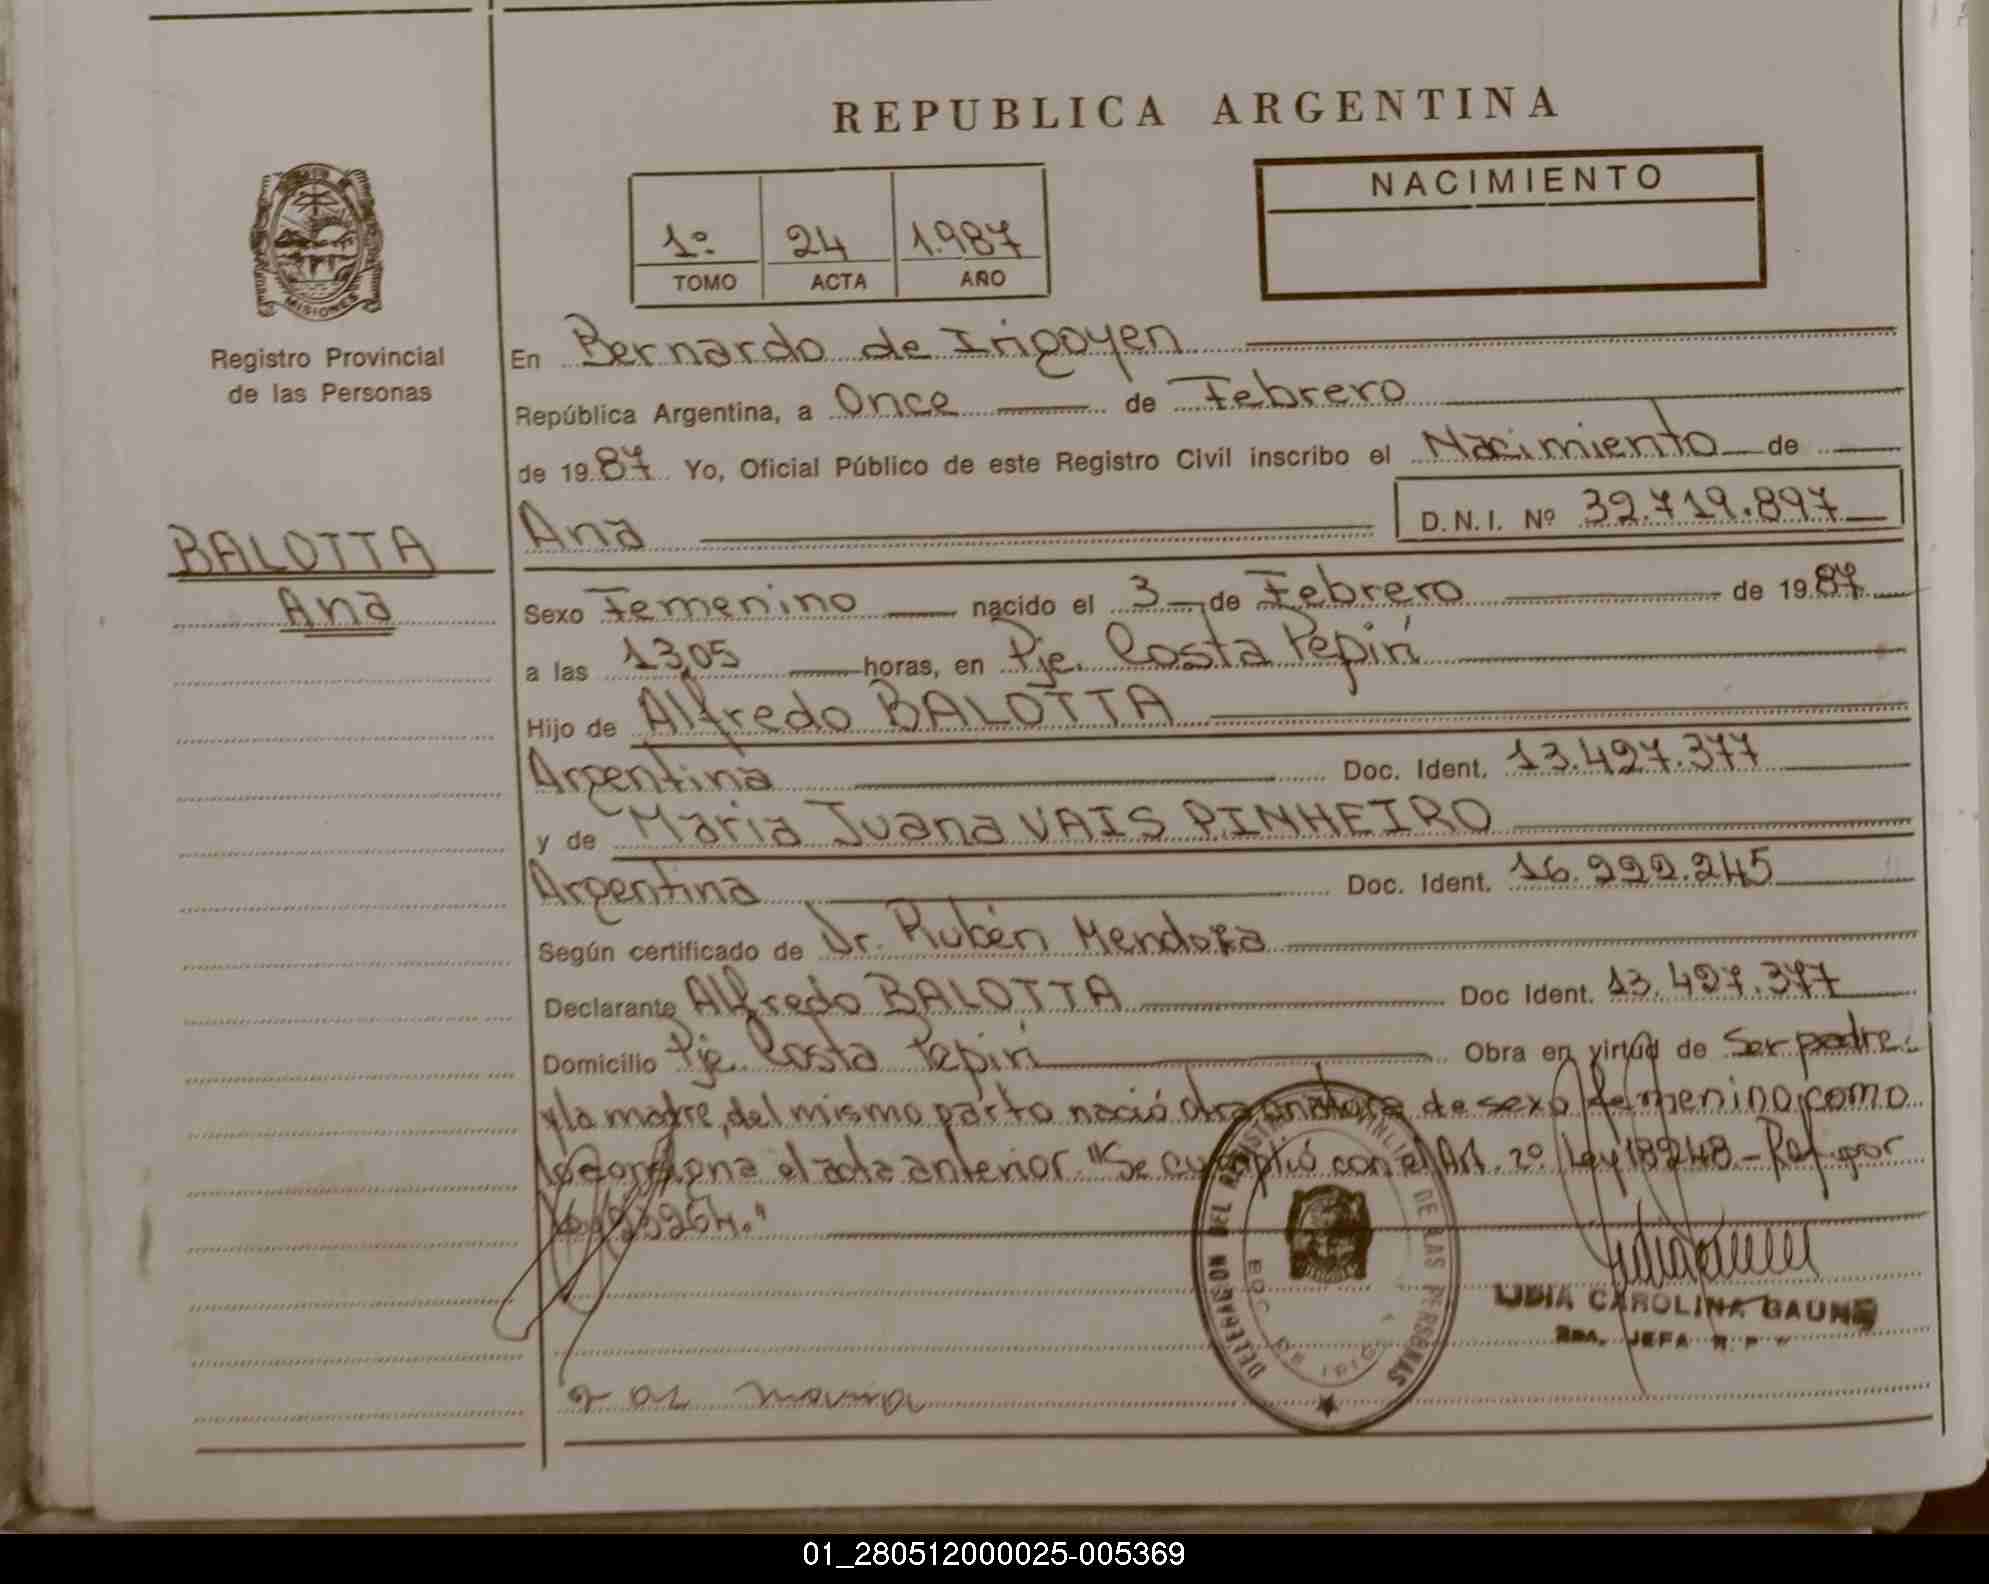 REPUBLICA ARGENTINA
NACIMIENTO
1º 24 1.987
TOMO ACTA AÑO
MISIONES
Registro Provincial
de las Personas
En Bernardo de Irigoyen
República Argentina, a Once de Febrero
de 19 87 Yo, Oficial Público de este Registro Civil inscribo el Nacimiento de
BALOTTA
Ana
Ana D.N.I. Nº 32.719.897
Sexo Femenino nacido el 3 de Febrero de 19 87
a las 13,05 horas, en Pje. Costa Pepirí
Hijo de Alfredo BALOTTA
Argentina Doc. Ident. 13.427.377
y de Maria Juana VAIS PINHEIRO
Argentina Doc. Ident. 16.222.245
Según certificado de Dr. Rubén Mendoza
Declarante Alfredo BALOTTA Doc Ident. 13.427.377
Domicilio Pje. Costa Pepirí Obra en virtud de Ser padre.
y la madre, del mismo parto nació otra de sexo femenino, como
el acta anterior. "Se cumplió con el Art. 2º Ley 18248 - Ref. por
Ley 23264."
DELEGACION DEL REGISTRO PROVINCIAL DE LAS PERSONAS
LIDIA CAROLINA GAUNA
JEFA R. P.
01_280512000025-005369